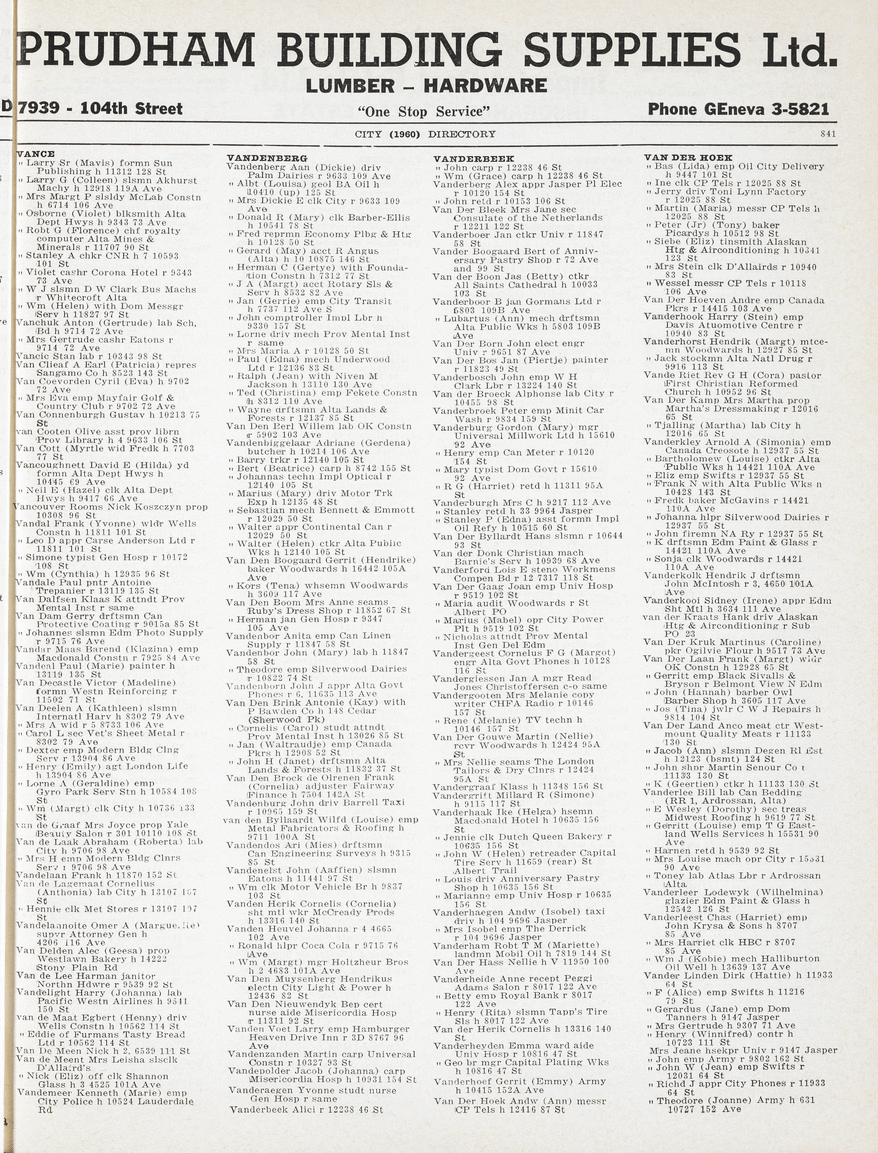 PRUDHAM BUILDING SUPPLIES Ltd.
LUMBER – HARDWARE
7939 - 104th Street
“One Stop Service”
Phone GEneva 3-5821
CITY (1960) DIRECTORY
841
VANCE
" Larry Sr (Mavis) formn Sun
Publishing h 11312 128 St
" Larry G (Colleen) slsmn Akhurst
Machy h 12918 119A Ave
" Mrs Margt P slsldy McLab Constn
h 6714 106 Ave
" Osborne (Violet) blksmith Alta
Dept Hwys h 9343 73 Ave
" Robt G (Florence) chf royalty
computer Alta Mines &
Minerals r 11707 90 St
" Stanley A chkr CNR h 7 10593
101 St
" Violet cashr Corona Hotel r 9343
73 Ave
" W J slsmn D W Clark Bus Machs
r Whitecroft Alta
" Wm (Helen) with Dom Messgr
Serv h 11827 97 St
Vanchuk Anton (Gertrude) lab Sch,
Bd h 9714 72 Ave
" Mrs Gertrude cashr Eatons r
9714 72 Ave
Vancic Stan lab r 10343 98 St
Van Clieaf A Earl (Patricia) repres
Sangamo Co h 8523 143 St
Van Coevorden Cyril (Eva) h 9702
72 Ave
" Mrs Eva emp Mayfair Golf &
Country Club r 9702 72 Ave
Van Connenburgh Gustav h 10213 75
St
van Cooten Olive asst prov librn
Prov Library h 4 9633 106 St
Van Cott (Myrtle wid Fredk h 7703
77 St
Vancoughnett David E (Hilda) yd
formn Alta Dept Hwys h
10445 69 Ave
" Neil E (Hazel) clk Alta Dept
Hwys h 9417 66 Ave
Vancouver Rooms Nick Koszczyn prop
10308 96 St
Vandal Frank (Yvonne) wldr Wells
Constn h 11811 101 St
" Leo D appr Carse Anderson Ltd r
11811 101 St
" Simone typist Gen Hosp r 10172
108 St
" Wm (Cynthia) h 12935 96 St
Vandale Paul pntr Antoine
Trepanier r 13119 135 St
Van Dalfsen Klaas K attndt Prov
Mental Inst r same
Van Dam Gerry drftsmn Can
Protective Coating r 9015a 85 St
" Johannes slsmn Edm Photo Supply
r 9715 76 Ave
Vandar Maas Barend (Klazina) emp
Macdonald Constn r 7925 84 Ave
Vandeal Paul (Marie) painter h
13119 135 St
Van Decastle Victor (Madeline)
formn Westn Reinforcing r
11502 71 St
Van Deelen A (Kathleen) slsmn
Internatl Harv h 8302 79 Ave
" Mrs A wid r 5 8733 106 Ave
" Carol L sec Vet's Sheet Metal r
8302 79 Ave
" Dexter emp Modern Bldg Clng
Serv r 13904 86 Ave
" Henry (Emily) agt London Life
h 13904 86 Ave
" Lorne A (Geraldine) emp
Gyro Park Serv Stn h 10584 108
St
" Wm (Margt) clk City h 10736 133
St
van de Graaf Mrs Joyce prop Yale
Beauty Salon r 301 10110 108 St
Van de Laak Abraham (Roberta) lab
City h 9706 98 Ave
" Mrs H emp Modern Bldg Clnrs
Serv r 9706 98 Ave
Vandelaan Frank h 11870 152 St
Van de Lagemaat Cornelius
(Anthonia) lab City h 13107 107
St
" Hennie clk Met Stores r 13107 107
St
Vandelannoite Omer A
supvr Attorney Gen h
4206 116 Ave
Van Delden Alec (Geesa) prop
Westlawn Bakery h 14222
Stony Plain Rd
Van de Lee Harman janitor
Northn Hdwre r 9539 92 St
Vandelight Harry (Johanna) lab
Pacific Westn Airlines h 9541
150 St
van de Maat Egbert (Henny) driv
Wells Constn h 10562 114 St
" Eddie of Furmans Tasty Bread
Ltd r 10562 114 St
Van De Meen Nick h 2, 6539 111 St
Van de Meent Mrs Leisha slsclk
D'Allaird's
" Nick (Eliz) off clk Shannon
Glass h 3 4525 101A Ave
Vandemeer Kenneth (Marie) emp
City Police h 10524 Lauderdale
Rd
VANDENBERG
Vandenberg Aan (Dickie) driv
Palm Dairies r 9633 109 Ave
" Albt (Louisa) geol BA Oil h
10410 (up) 125 St
" Mrs Dickie E clk City r 9633 109
Ave
" Donald R (Mary) clk Barber-Ellis
h 10541 78 St
" Fred reprmn Economy Plbg & Htg
h 10128 50 St
" Gerard (May) acct R Angus
(Alta) h 10 10875 146 St
" Herman C (Gertye) with Founda-
tion Constn h 7312 77 St
" J A (Margt) acct Rotary Sls &
Serv h 8532 82 Ave
" Jan (Gerrie) emp City Transit
h 7737 112 Ave S
" John comptroller Impl Lbr h
9330 157 St
" Lorne driv mech Prov Mental Inst
r same
" Mrs Maria A r 10128 50 St
" Paul (Edna) mech Underwood
Ltd r 12136 83 St
" Ralph (Jean) with Niven M
Jackson h 13110 130 Ave
" Ted (Christina) emp Fekete Constn
h 8312 110 Ave
" Wayne drftsmn Alta Lands &
Forests r 12137 85 St
Van Den Berl Willem lab OK Constn
r 5902 103 Ave
Vandenbiggelaar Adriane (Gerdena)
butcher h 10214 106 Ave
" Barry trkr r 12140 105 St
" Bert (Beatrice) carp h 8742 155 St
" Johannas techn Impl Optical r
12140 105 St
" Marius (Mary) driv Motor Trk
Exp h 12135 48 St
" Sebastian mech Bennett & Emmott
r 12029 50 St
" Walter appr Continental Can r
12029 50 St
" Walter (Helen) ctkr Alta Public
Wks h 12140 105 St
Van Den Boogaard Gerrit (Hendrike)
baker Woodwards h 16442 105A
Ave
" Kors (Tena) whsemn Woodwards
h 3609 117 Ave
Van Den Boom Mrs Anne seams
Ruby's Dress Shop r 11852 67 St
" Herman jan Gen Hosp r 9347
105 Ave
Vandenbor Anita emp Can Linen
Supply r 11847 58 St
Vandenbor John (Mary) lab h 11847
58 St
" Theodore emp Silverwood Dairies
r 10822 74 St
Vandenborn John J appr Alta Govt
Phones r 6, 11635 113 Ave
Van Den Brink Antonie (Kay) with
P Bawden Co h 148 Cedar
(Sherwood Pk)
" Cornelis (Carol) studt attndt
Prov Mental Inst h 13026 85 St
" Jan (Waltraudje) emp Canada
Pkrs h 12908 52 St
" John H (Janet) drftsmn Alta
Lands & Forests h 11832 37 St
Van Den Brock de Obrenen Frank
(Cornelia) adjuster Fairway
Finance h 7504 142A St
Vandenburg John driv Barrell Taxi
r 10965 159 St
van den Byllaardt Wilfd (Louise) emp
Metal Fabricators & Roofing h
9711 100A St
Vandendos Ari (Mies) drftsmn
Can Engineering Surveys h 9315
85 St
Vandenelst John (Aaffien) slsmn
Eatons h 11441 97 St
" Wm clk Motor Vehicle Br h 9837
103 St
Vanden Herik Cornelis (Cornelia)
sht mtl wkr McCready Prods
h 13316 140 St
Vanden Heuvel Johanna r 4 4665
102 Ave
" Ronald hlpr Coca Cola r 9715 76
Ave
" Wm (Margt) mgr Holtzheur Bros
h 2 4683 101A Ave
Van Den Muysenberg Hendrikus
electn City Light & Power h
12436 82 St
Van Den Nieuwendyk Bep cert
nurse aide Misericordia Hosp
r 11311 92 St
Vanden Voet Larry emp Hamburger
Heaven Drive Inn r 3D 8767 96
Ave
Vandenzanden Martin carp Universal
Constn r 10327 93 St
Vandepolder Jacob (Johanna) carp
Misericordia Hosp h 10931 154 St
Vanderaegen Yvonne studt nurse
Gen Hosp r same
Vanderbeek Alici r 12238 46 St
VANDERBEEK
" John carp r 12238 46 St
" Wm (Grace) carp h 12238 46 St
Vanderberg Alex appr Jasper Pl Elec
r 10120 154 St
" John retd r 10153 106 St
Van Der Bleek Mrs Jane sec
Consulate of the Netherlands
r 12211 122 St
Vanderboer Jan ctkr Univ r 11847
58 St
Vander Boogaard Bert of Anniv-
ersary Pastry Shop r 72 Ave
and 99 St
Van der Boon Jas (Betty) ctkr
All Saints Cathedral h 10033
103 St
Vanderboor B jan Gormans Ltd r
5803 109B Ave
" Lubartus (Ann) mech drftsmn
Alta Public Wks h 5803 109B
Ave
Van Der Born John elect engr
Univ r 9651 87 Ave
Van Der Bos Jan (Piertje) painter
r 11823 49 St
Vanderbosch John emp W H
Clark Lbr r 13224 140 St
Van der Broeck Alphonse lab City r
10455 98 St
Vanderbroek Peter emp Minit Car
Wash r 9834 159 St
Vanderburg Gordon (Mary) mgr
Universal Millwork Ltd h 15610
92 Ave
" Henry emp Can Meter r 10120
154 St
" Mary typist Dom Govt r 15610
92 Ave
" R G (Harriet) retd h 11311 95A
St
Vanderburgh Mrs C h 9217 112 Ave
" Stanley retd h 33 9964 Jasper
" Stanley P (Edna) asst formn Impl
Oil Refy h 10515 60 St
Van Der Byllardt Hans slsmn r 10644
93 St
Van der Donk Christian mach
Barnie's Serv h 10939 68 Ave
Vanderford Lois E steno Workmens
Compen Bd r 12 7317 118 St
Van Der Graag Joan emp Univ Hosp
r 9519 102 St
" Maria audit Woodwards r St
Albert PO
" Marius (Mabel) opr City Power
Plt h 9519 102 St
" Nicholas attndt Prov Mental
Inst Gen Del Edm
Vandergeest Cornelus F G (Margot)
engr Alta Govt Phones h 10128
116 St
Vandergiessen Jan A mgr Read
Jones Christoffersen c-o same
Vandergooten Mrs Melanie copy
writer CHFA Radio r 10146
157 St
" Rene (Melanie) TV techn h
10146 157 St
Van Der Gouwe Martin (Nellie)
rcvr Woodwards h 12424 95A
St
" Mrs Nellie seams The London
Tailors & Dry Clnrs r 12424
95A St
Vandergraaf Klass h 11348 156 St
Vandergrift Millard R (Simone)
h 9115 117 St
Vanderhaak Ike (Helga) hsemn
Macdonald Hotel h 10635 156
St
" Jennie clk Dutch Queen Bakery r
10635 156 St
" John W (Helen) retreader Capital
Tire Serv h 11659 (rear) St
Albert Trail
" Louis driv Anniversary Pastry
Shop h 10635 156 St
" Marianne emp Univ Hosp r 10635
156 St
Vanderhaegen Andw (Isobel) taxi
driv h 104 9696 Jasper
" Mrs Isobel emp The Derrick
r 104 9696 Jasper
Vanderham Robt T M (Mariette)
landmn Mobil Oil h 7819 144 St
Van Der Hass Nellie h V 11950 100
Ave
Vanderheide Anne recept Peggi
Adams Salon r 8017 122 Ave
" Betty emp Royal Bank r 8017
122 Ave
" Henry (Rita) slsmn Tapp's Tire
Sls h 8017 122 Ave
Van der Herik Cornelis h 13316 140
St
Vanderheyden Emma ward aide
Univ Hosp r 10816 47 St
" Geo br mgr Capital Plating Wks
h 10816 47 St
Vanderhoef Gerrit (Emmy) Army
h 10415 152A Ave
Van Der Hoek Andw (Ann) messr
CP Tels h 12416 87 St
VAN DER HOEK
" Bas (Lida) emp Oil City Delivery
h 9447 101 St
" Ine clk CP Tels r 12025 88 St
" Jerry driv Toni Lynn Factory
r 12025 88 St
" Martin (Maria) messr CP Tels h
12025 88 St
" Peter (Jr) (Tony) baker
Picardys h 10512 98 St
" Siebe (Eliz) tinsmith Alaskan
Htg & Airconditioning h 10341
123 St
" Mrs Stein clk D'Allairds r 10940
83 St
" Wessel messr CP Tels r 10118
106 Ave
Van Der Hoeven Andre emp Canada
Pkrs r 14415 103 Ave
Vanderhook Harry (Stein) emp
Davis Atuomotive Centre r
10940 83 St
Vanderhorst Hendrik (Margt) mtce-
mn Woodwards h 12927 85 St
" Jack stockmn Alta Natl Drug r
9916 113 St
Vande Riet Rev G H (Cora) pastor
First Christian Reformed
Church h 10952 96 St
Van Der Kamp Mrs Martha prop
Martha's Dressmaking r 12016
65 St
" Tjalling (Martha) lab City h
12016 65 St
Vanderkley Arnold A (Simonia) emp
Canada Creosote h 12937 55 St
" Bartholomew (Louise) ctkr Alta
Public Wks h 14421 110A Ave
" Eliz emp Swifts r 12937 55 St
" Frank N with Alta Public Wks n
10428 143 St
" Fredk baker McGavins r 14421
110A Ave
" Johanna hlpr Silverwood Dairies r
12937 55 St
" John firemn NA Ry r 12937 55 St
" K drftsmn Edm Paint & Glass r
14421 110A Ave
" Sonja clk Woodwards r 14421
110A Ave
Vanderkolk Hendrik J drftsmn
John McIntosh r 3, 4650 101A
Ave
Vanderkooi Sidney (Irene) appr Edm
Sht Mtl h 3634 111 Ave
van der Kraats Hank driv Alaskan
Htg & Airconditioning r Sub
PO 23
Van Der Kruk Martinus (Caroline)
pkr Ogilvie Flour h 9517 73 Ave
Van Der Laan Frank (Margt) wldr
OK Constn h 12928 65 St
" Gerritt emp Black Sivalls &
Bryson r Belmont View N Edm
" John (Hannah) barber Owl
Barber Shop h 3605 117 Ave
" Jos (Tina) jwlr C W J Repairs h
9814 104 St
Van Der Land Anco meat ctr West-
mount Quality Meats r 11133
130 St
" Jacob (Ann) slsmn Degen Rl Est
h 12123 (bsmt) 124 St
" John shpr Martin Senour Co r
11133 130 St
" K (Geertien) ctkr h 11133 130 St
Vanderlee Bill lab Can Bedding
(RR 1, Ardrossan, Alta)
" E Wesley (Dorothy) sec treas
Midwest Roofing h 9619 77 St
" Gerritt (Louise) emp T G East-
land Wells Services h 15531 90
Ave
" Harnen retd h 9539 92 St
" Mrs Louise mach opr City r 15531
90 Ave
" Toney lab Atlas Lbr r Ardrossan
Alta.
Vanderleer Lodewyk (Wilhelmina)
glazier Edm Paint & Glass h
12542 126 St
Vanderleest Chas (Harriet) emp
John Krysa & Sons h 8707
85 Ave
" Mrs Harriet clk HBC r 8707
85 Ave
" Wm J (Kobie) mech Halliburton
Oil Well h 13639 137 Ave
Vander Linden Dirk (Hattie) h 11933
64 St
" F (Alice) emp Swifts h 11216
79 St
" Gerardus (Jane) emp Dom
Tanners h 9147 Jasper
" Mrs Gertrude h 9307 71 Ave
" Henry (Winnifred) contr h
10723 111 St
Mrs Jeane hsekpr Univ r 9147 Jasper
" John emp Army r 9802 162 St
" John W (Jean) emp Swifts r
12031 64 St
" Richd J appr City Phones r 11933
64 St
" Theodore (Joanne) Army h 631
10727 152 Ave